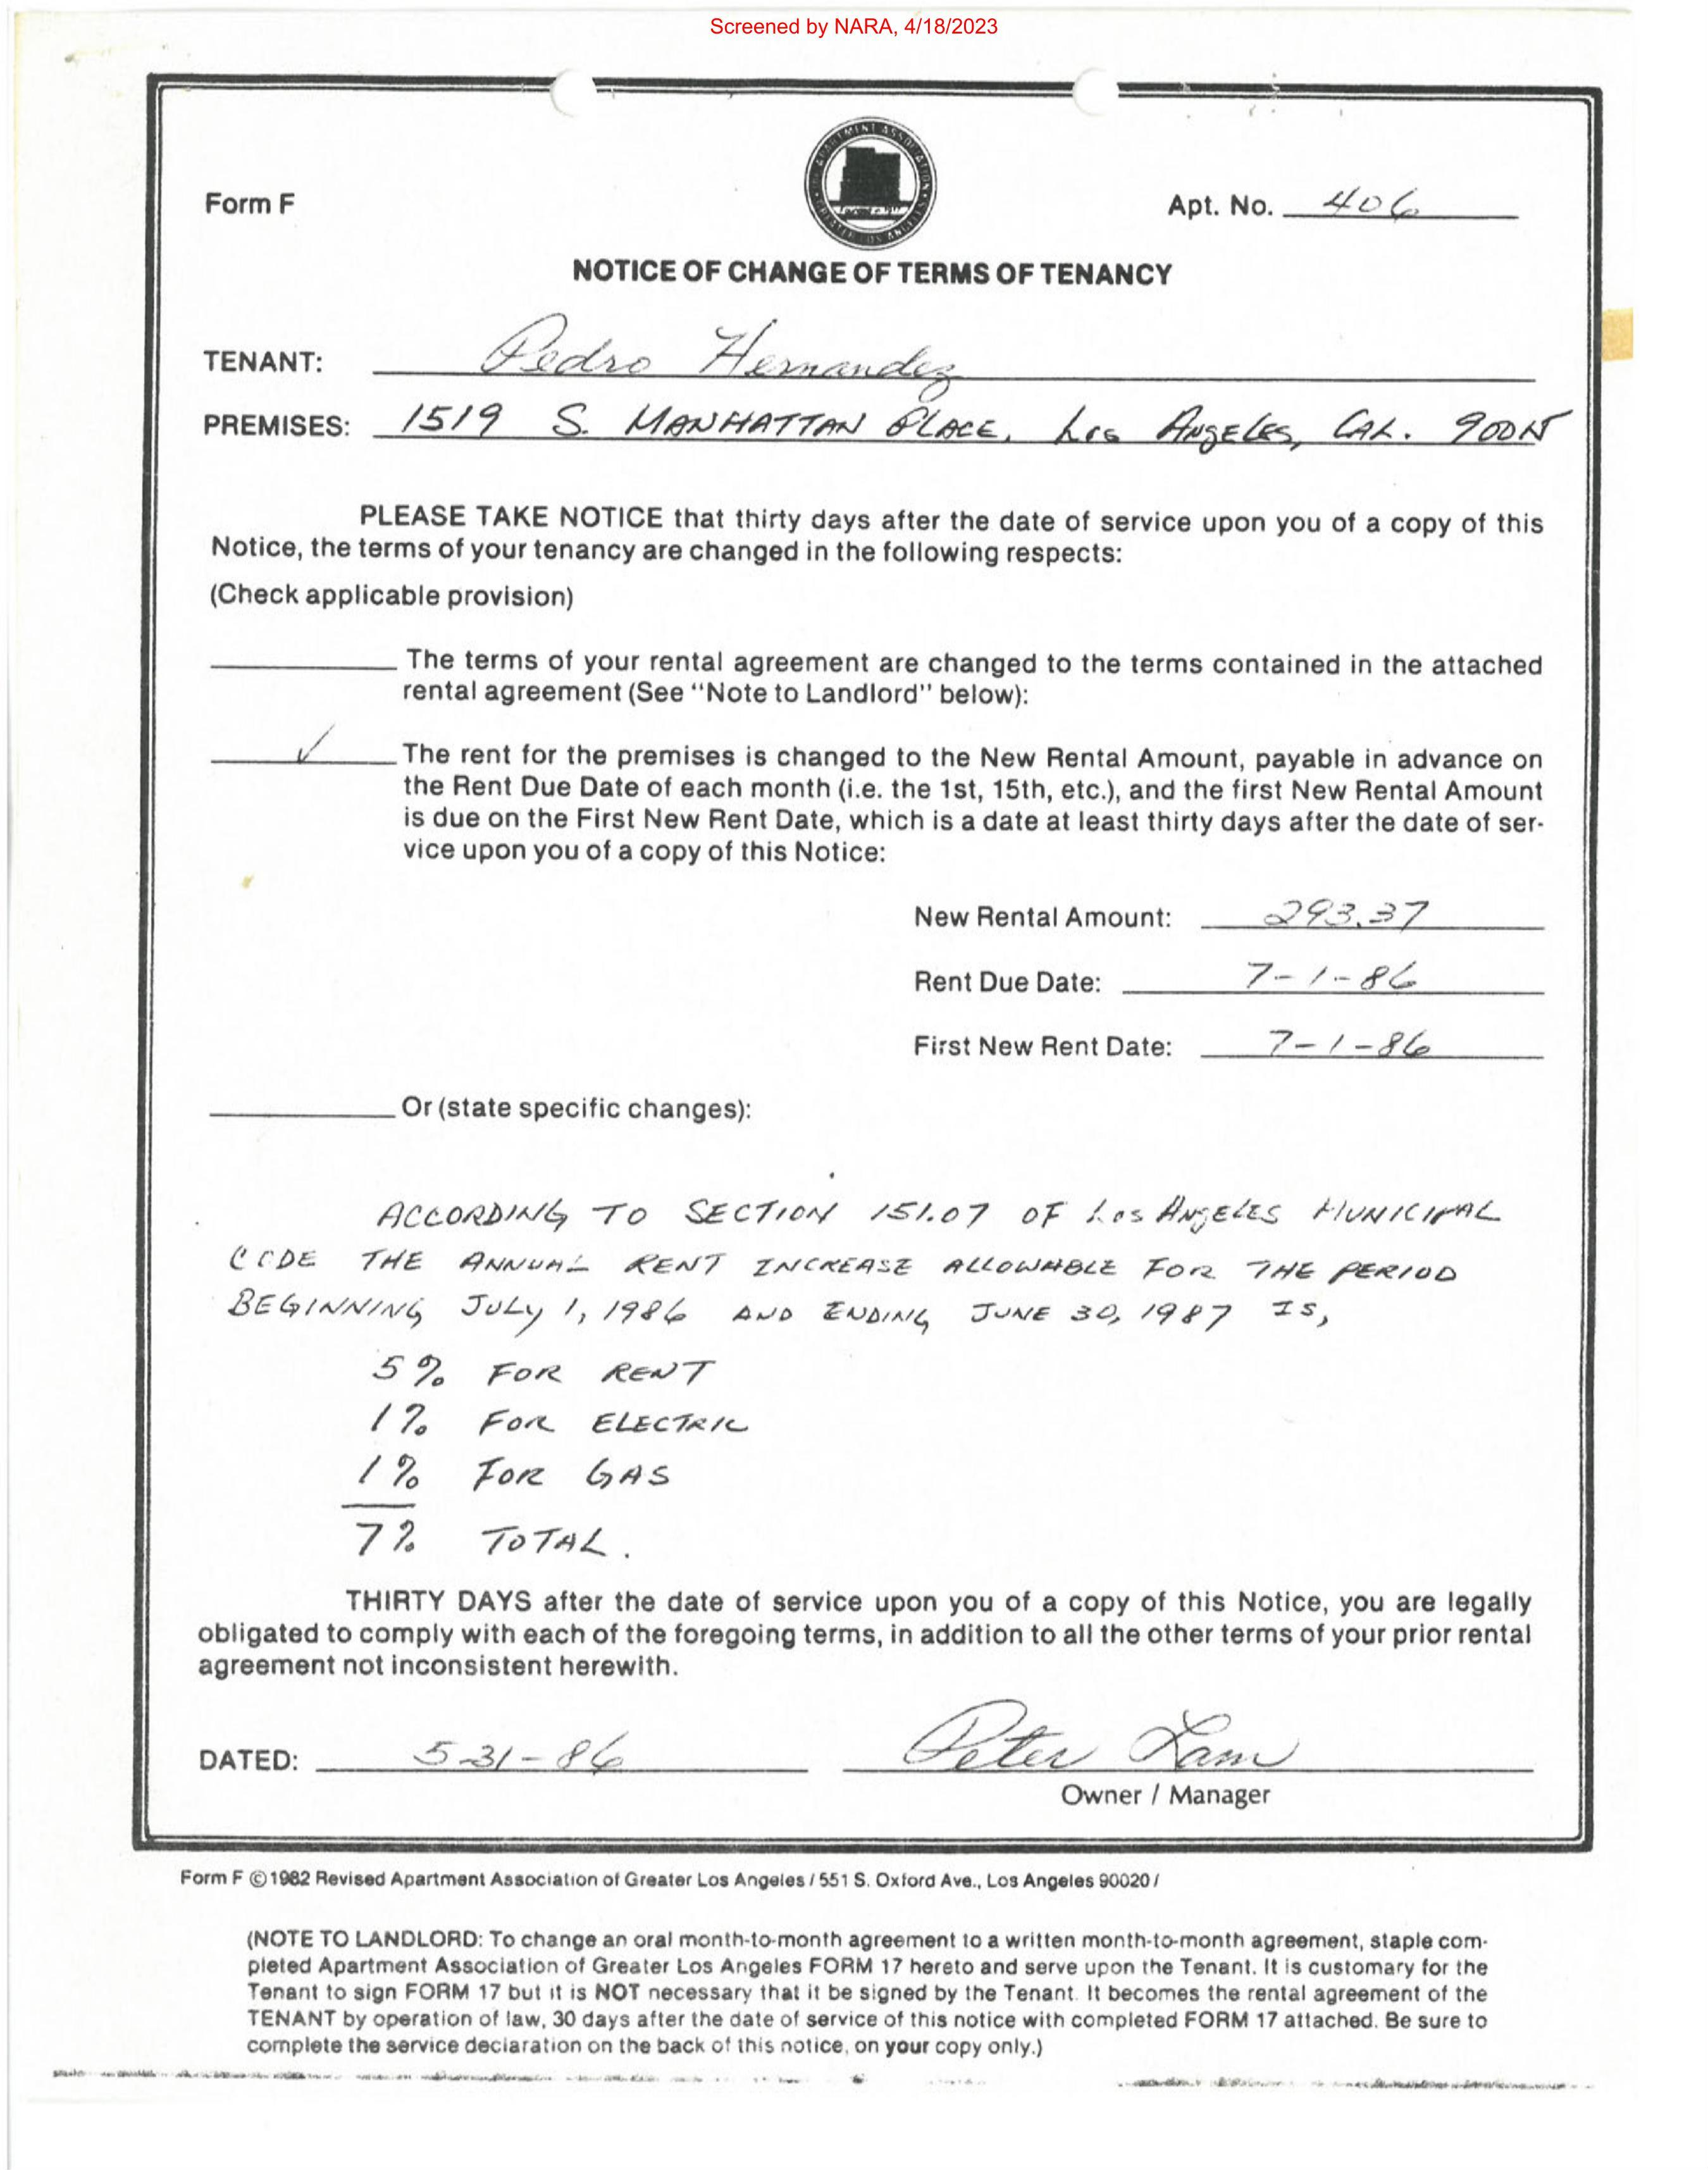 Screened by NARA, 4/18/2023
Form F
Apt. No. 406
NOTICE OF CHANGE OF TERMS OF TENANCY
TENANT: Pedro Hernandez
PREMISES: 1519 S. MANHATTAN PLACE, Los Angeles, CAL.
PLEASE TAKE NOTICE that thirty days after the date of service upon you of a copy of this
Notice, the terms of your tenancy are changed in the following respects:
(Check applicable provision)
The terms of your rental agreement are changed to the terms contained in the attached
rental agreement (See "Note to Landlord" below):
✓ The rent for the premises is changed to the New Rental Amount, payable in advance on
the Rent Due Date of each month (i.e. the 1st, 15th, etc.), and the first New Rental Amount
is due on the First New Rent Date, which is a date at least thirty days after the date of ser-
vice upon you of a copy of this Notice:
New Rental Amount: 293.37
Rent Due Date: 7-1-86
First New Rent Date: 7-1-86
Or (state specific changes):
ACCORDING TO SECTION 151.07 OF Los Angeles MUNICIPAL
CODE THE ANNUAL RENT INCREASE ALLOWABLE FOR THE PERIOD
BEGINNING JULY 1, 1986 AND ENDING JUNE 30, 1987 IS,
5% FOR RENT
1% FOR ELECTRIC
1% FOR GAS
7% TOTAL.
THIRTY DAYS after the date of service upon you of a copy of this Notice, you are legally
obligated to comply with each of the foregoing terms, in addition to all the other terms of your prior rental
agreement not inconsistent herewith.
DATED: 5-31-86 Peter Lam
Owner / Manager
Form F ©1982 Revised Apartment Association of Greater Los Angeles / 551 S. Oxford Ave., Los Angeles 90020 /
(NOTE TO LANDLORD: To change an oral month-to-month agreement to a written month-to-month agreement, staple com-
pleted Apartment Association of Greater Los Angeles FORM 17 hereto and serve upon the Tenant. It is customary for the
Tenant to sign FORM 17 but it is NOT necessary that it be signed by the Tenant. It becomes the rental agreement of the
TENANT by operation of law, 30 days after the date of service of this notice with completed FORM 17 attached. Be sure to
complete the service declaration on the back of this notice, on your copy only.)